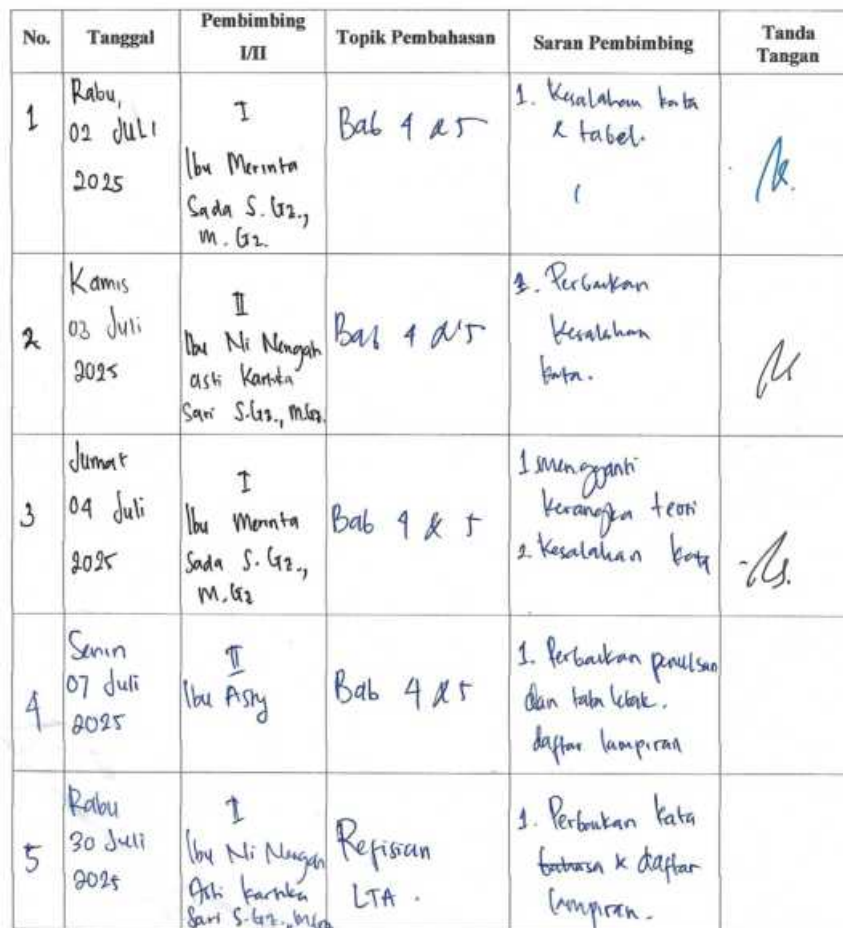 No. Tanggal Pembimbing I/II Topik Pembahasan Saran Pembimbing Tanda Tangan
1
Rabu,
02 JULI
2025
I
Ibu Merinta
Sada S.Gz.,
M.Gz.
Bab 4 & 5
1. Kesalahan kata
& tabel.
2
Kamis
03 Juli
2025
II
Ibu Ni Nengah
Asti Kartika
Sari S.Gz., M.Gz.
Bab 4 & 5
1. Perbaikan
kesalahan
kata.
3
Jumat
04 Juli
2025
I
Ibu Merinta
Sada S.Gz.,
M.Gz
Bab 4 & 5
1 mengganti
kerangka teori
2. Kesalahan kata
4
Senin
07 Juli
2025
II
Ibu Asty
Bab 4 & 5
1. Perbaikan penulisan
dan tata letak.
daftar lampiran
5
Rabu
30 Juli
2025
I
Ibu Ni Nengah
Asti Kartika
Sari S.Gz., M.Gz
Refisian
LTA.
1. Perbaikan kata
bahasa & daftar
lampiran.